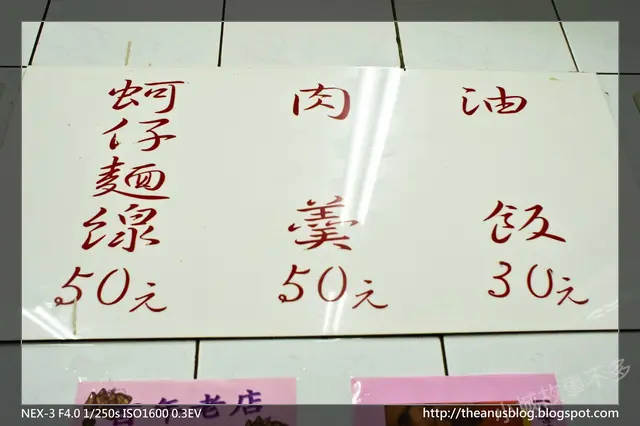 蚵仔麵線
50元
肉羹
50元
油飯
30元
百年老店
小城故事不多
NEX-3 F4.0 1/250s ISO1600 0.3EV
http://theanusblog.blogspot.com/